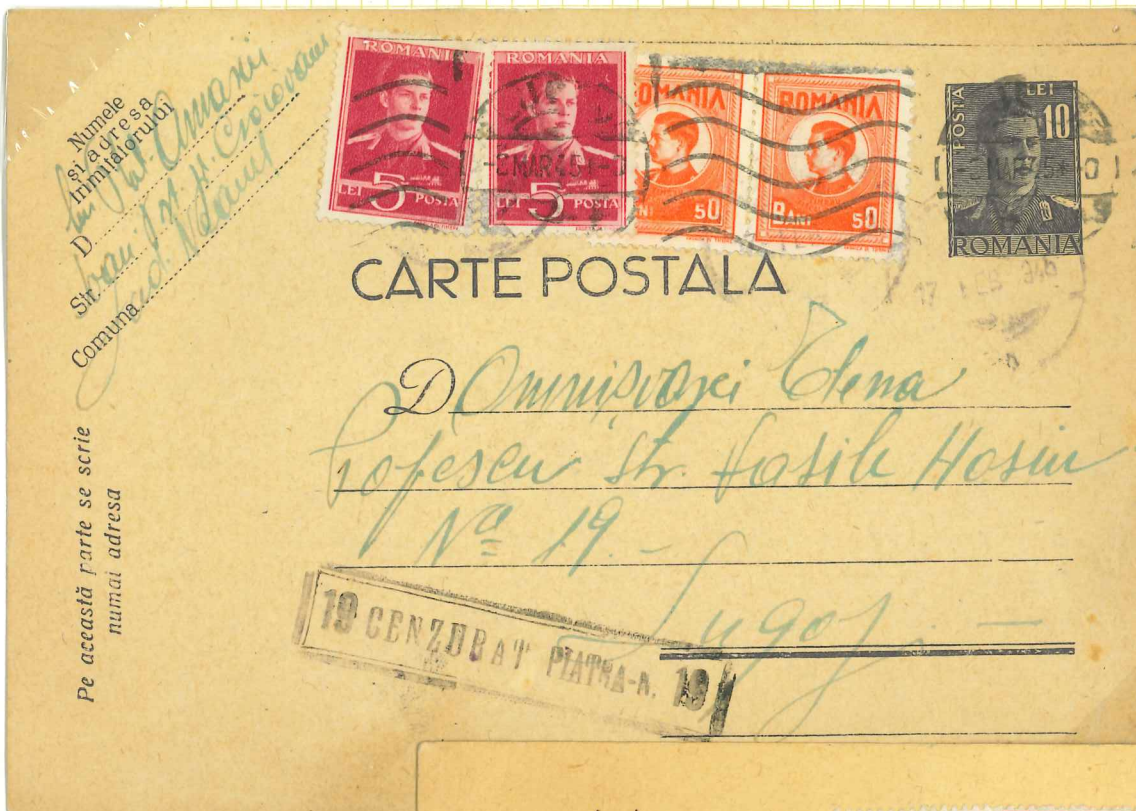 Numele
și adresa
trimițătorului
D
Str.
Comuna
Jud. Neamț
ROMANIA
LEI 5 POSTA
ROMANIA
LEI 5 POSTA
ROMANIA
BANI 50
ROMANIA
BANI 50
POSTA LEI 10
ROMANIA
-3 MAR 45
-3 MAR 45
17 FEB 945
CARTE POSTALA
Domnișoarei Elena
Popescu Str. Vasile Hosiu
No 19.-
Lugoj.-
Pe această parte se scrie
numai adresa
19 CENZURAT PIATRA-N. 19